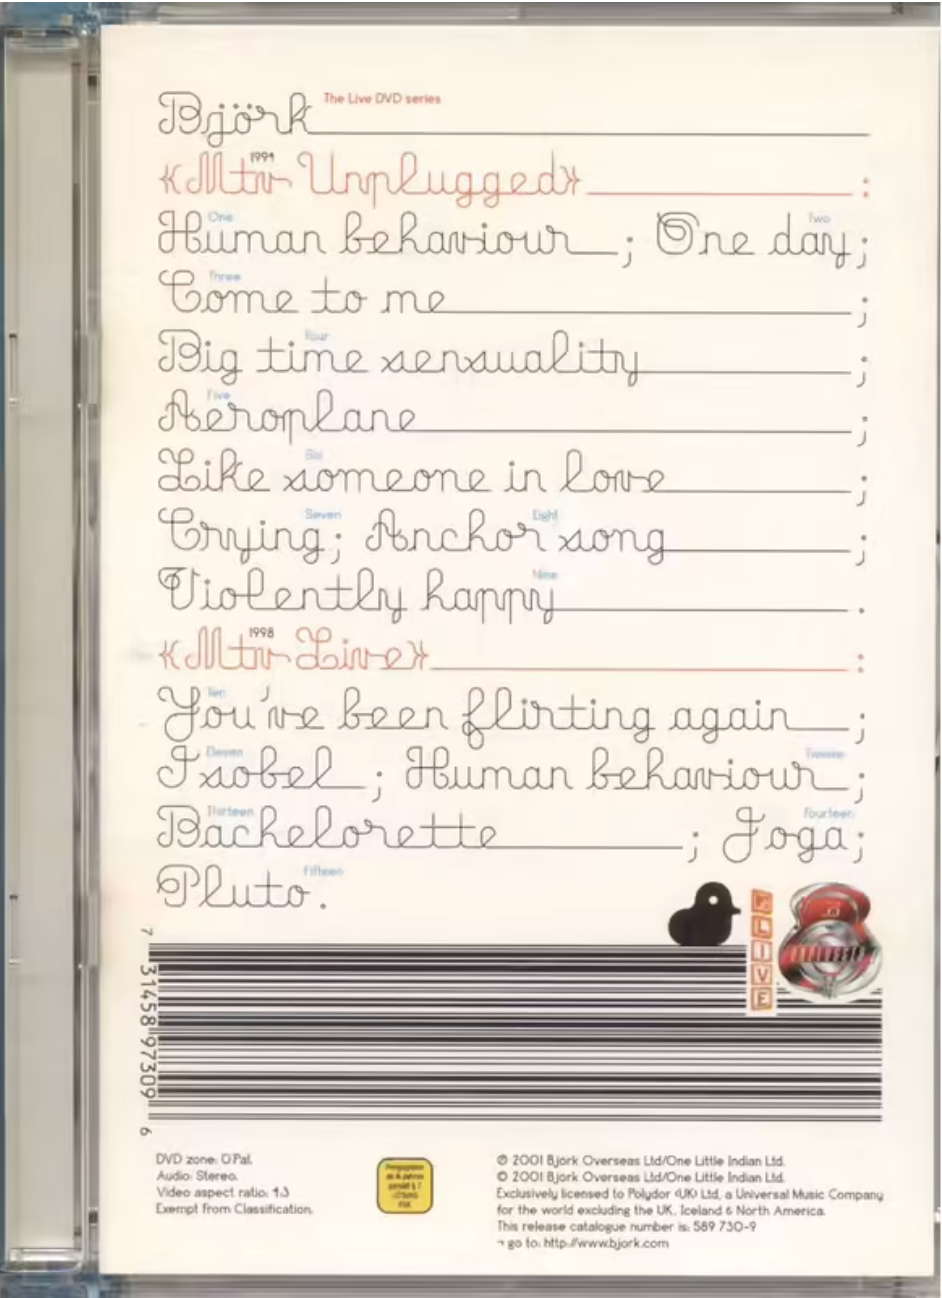 The Live DVD series
Björk
1994
«Mtv Unplugged» :
One Two
Human behaviour ; One day ;
Three
Come to me ;
Four
Big time sensuality ;
Five
Aeroplane ;
Six
Like someone in love ;
Seven Eight
Crying ; Anchor song ;
Nine
Violently happy .
1998
«Mtv Live» :
Ten
You've been flirting again ;
Eleven Twelve
Isobel ; Human behaviour ;
Thirteen Fourteen
Bachelorette ; Joga ;
Fifteen
Pluto .
LIVE
7 31458 97309 6
DVD zone: 0 Pal.
Audio: Stereo.
Video aspect ratio: 4:3
Exempt from Classification.
℗ 2001 Björk Overseas Ltd/One Little Indian Ltd.
© 2001 Björk Overseas Ltd/One Little Indian Ltd.
Exclusively licensed to Polydor (UK) Ltd, a Universal Music Company
for the world excluding the UK, Iceland & North America.
This release catalogue number is: 589 730-9
→ go to: http://www.bjork.com